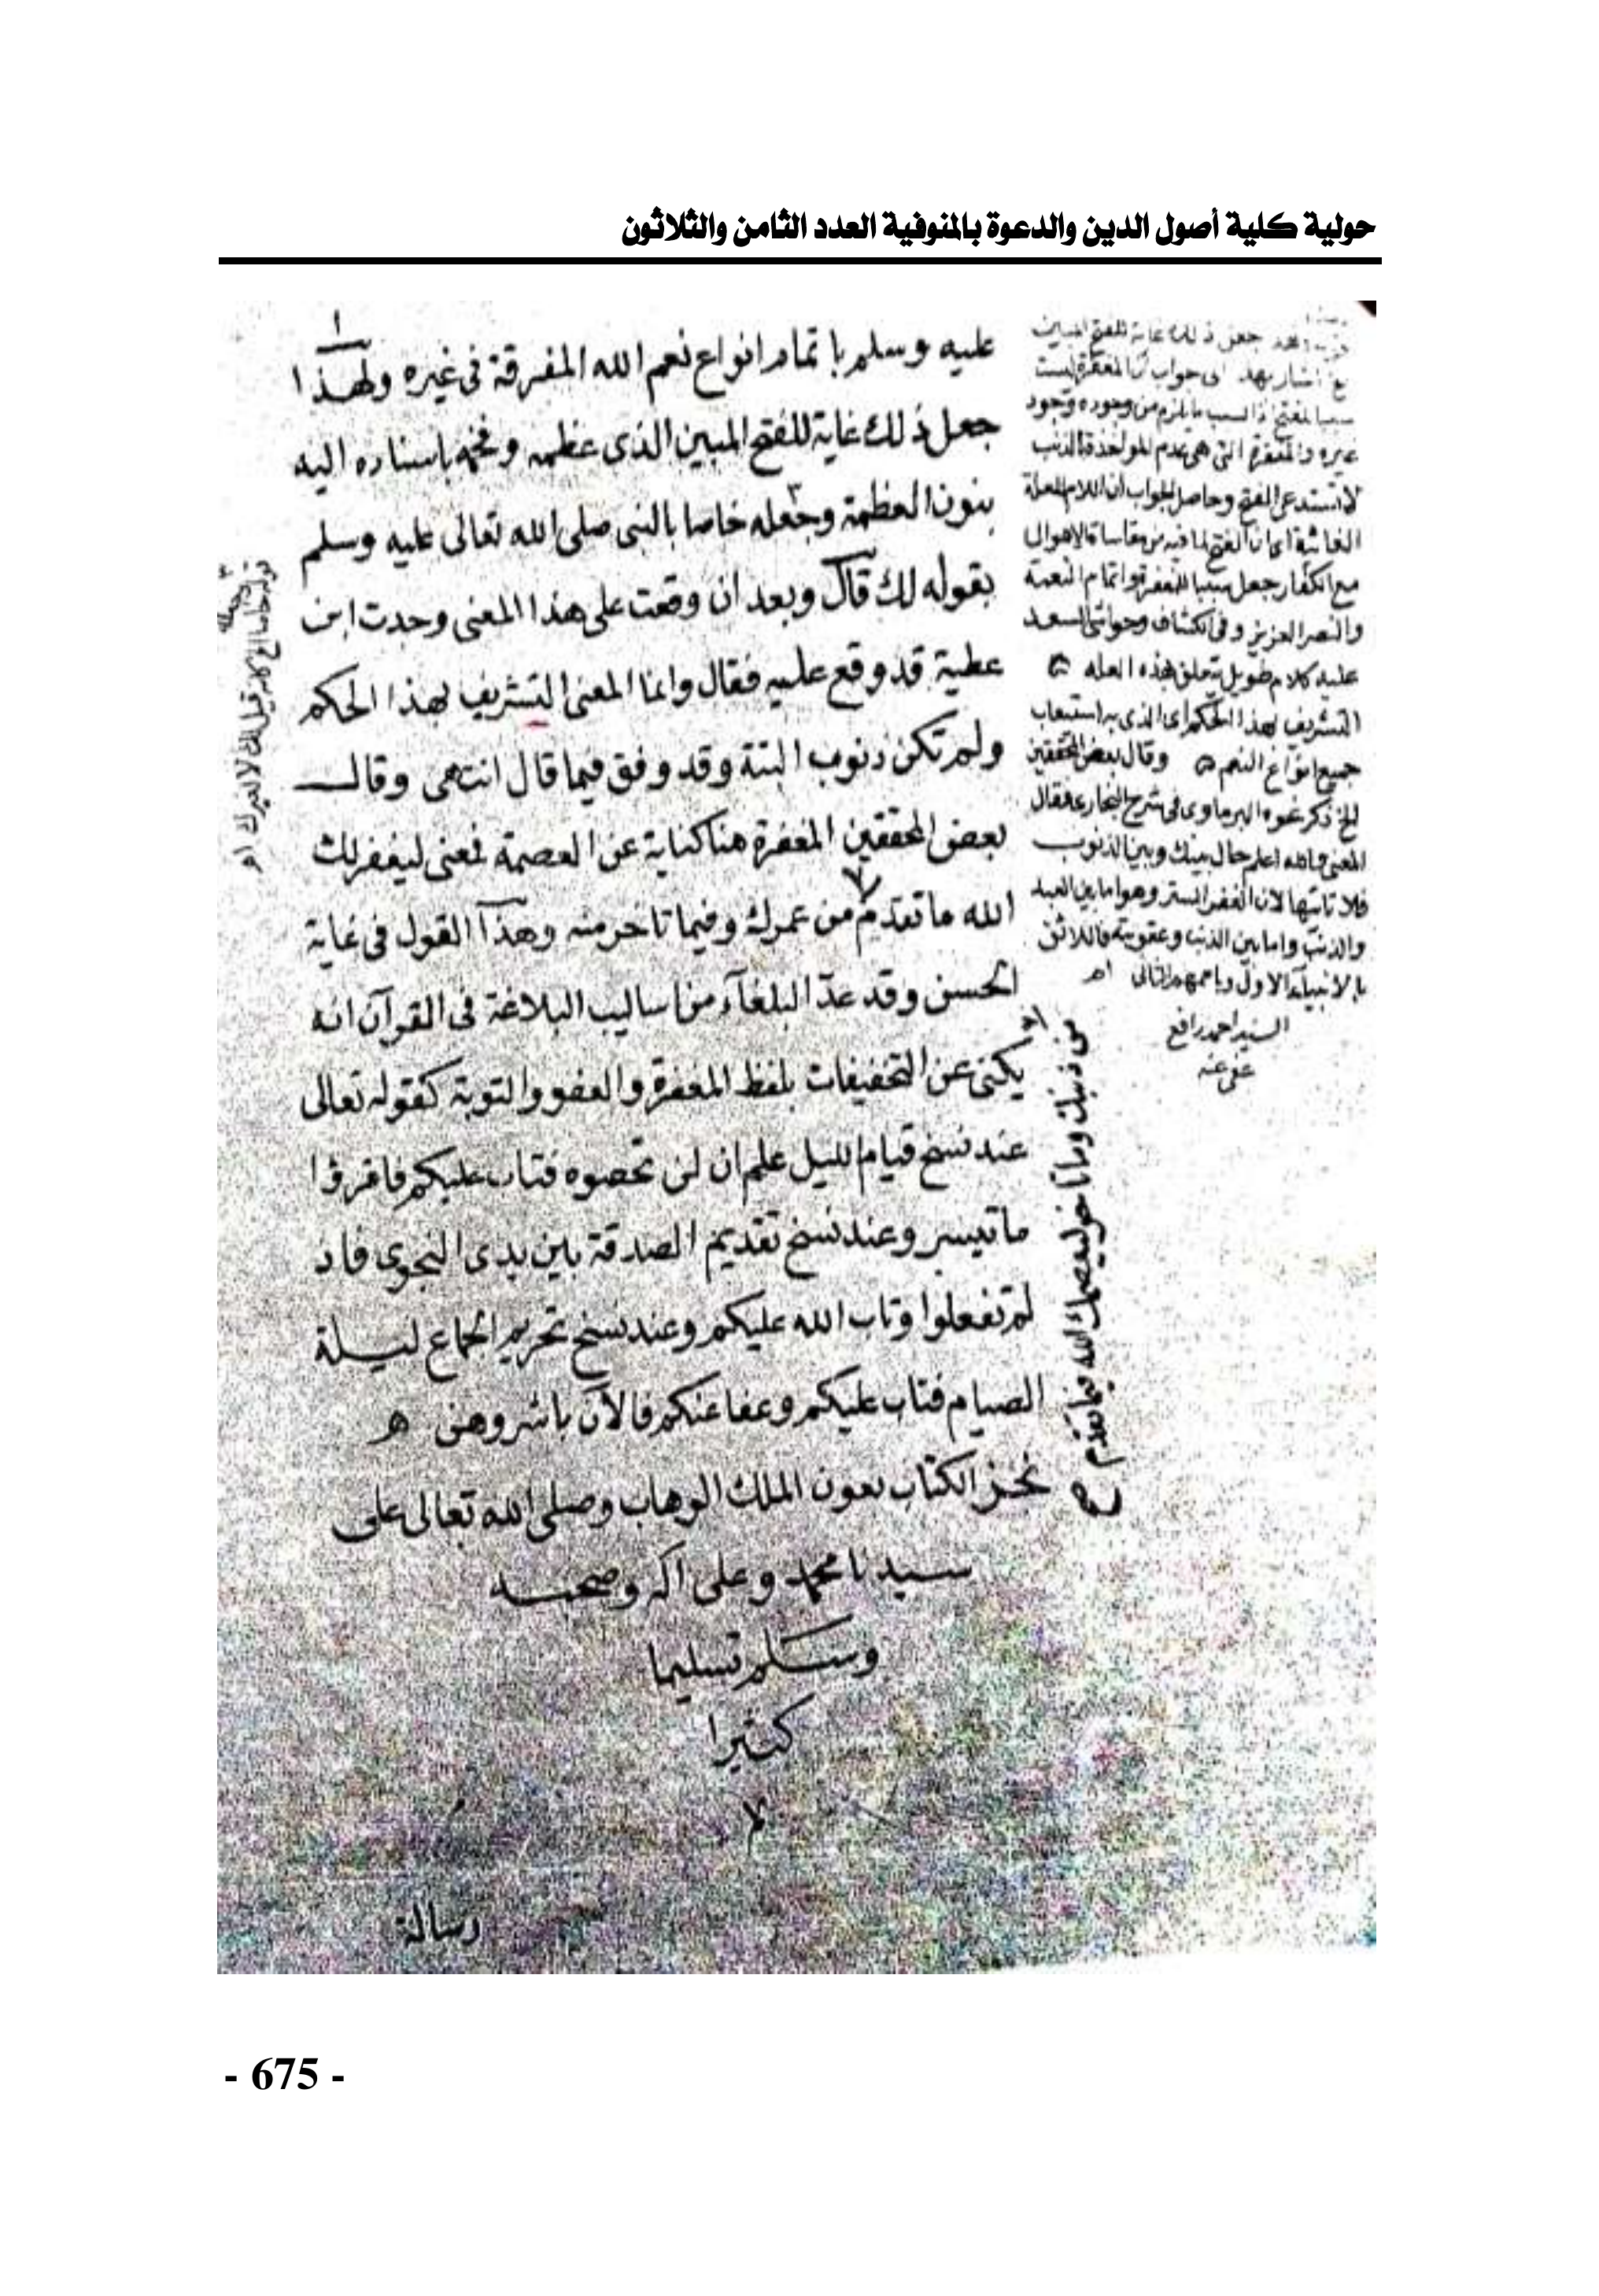 حولية كلية أصول الدين والدعوة بالمنوفية العدد الثامن والثلاثون
عليه وسلم باتمام انواع نعم الله المفرقة فى غيره ولهذا
جعل ذلك غاية للفتح المبين الذى عظمه وفخمه باسناده اليه
بنون العظمة وجعله خاصا بالنبى صلى الله تعالى عليه وسلم
بقوله لك قال وبعد ان وقعت على هذا المعنى وجدت ابن
عطية قد وقع عليه فقال وانما المعنى التشريف بهذا الحكم
ولم تكن ذنوب البتة وقد وفق فيما قال انتهى وقال
بعض المحققين المغفرة هنا كناية عن العصمة فمعنى ليغفر لك
الله ما تقدم من عمرك وفيما تاخر منه وهذا القول فى غاية
الحسن وقد عد البلغآء من اساليب البلاغة فى القرآن انه
يكنى عن التخفيفات بلفظ المغفرة والعفو والتوبة كقوله تعالى
عند نسخ قيام الليل علم ان لن تحصوه فتاب عليكم فاقرؤا
ما تيسر وعند نسخ تقديم الصدقة بين يدى النجوى فاذ
لم تفعلوا وتاب الله عليكم وعند نسخ تحريم الجماع ليلة
الصيام فتاب عليكم وعفا عنكم فالآن باشروهن ه
نجز الكتاب بعون الملك الوهاب وصلى الله تعالى على
سيدنا محمد وعلى آله وصحبه
وسلم تسليما
كثيرا
م
رسالة
جعل ذلك غاية للفتح المبين
اشار بهذا الى جواب ان المغفرة ليست
سببا للفتح اذ السبب ما يلزم من وجوده وجود
غيره والمغفرة التى هى عدم المؤاخذة بالذنب
لا تستدعى الفتح وحاصل الجواب ان اللام للعلة
الغائية اى ان الفتح لما فيه من مقاساة الاهوال
مع الكفار جعل سببا للمغفرة واتمام النعمة
والنصر العزيز وفى الكشاف وحواشى السعد
عليه كلام طويل يتعلق بهذه العلة ه
التشريف بهذا الحكم اى الذى به استيعاب
جميع انواع النعم ه وقال بعض المحققين
الخ ذكر نحوه البرماوى فى شرح البخارى فقال
المعنى والله اعلم حال بينك وبين الذنوب
فلا تاتيها لان الغفر الستر وهو اما بين العبد
والذنب واما بين الذنب وعقوبته فاللائق
بالانبيآء الاول وباممهم الثانى اه
السيد احمد رافع
عفى عنه
من ذنبك وما تاخر ليعصمك الله فيما تقدم
صح
قوله خاصا الخ كانه قيل لك لا لغيرك اه
- 675 -